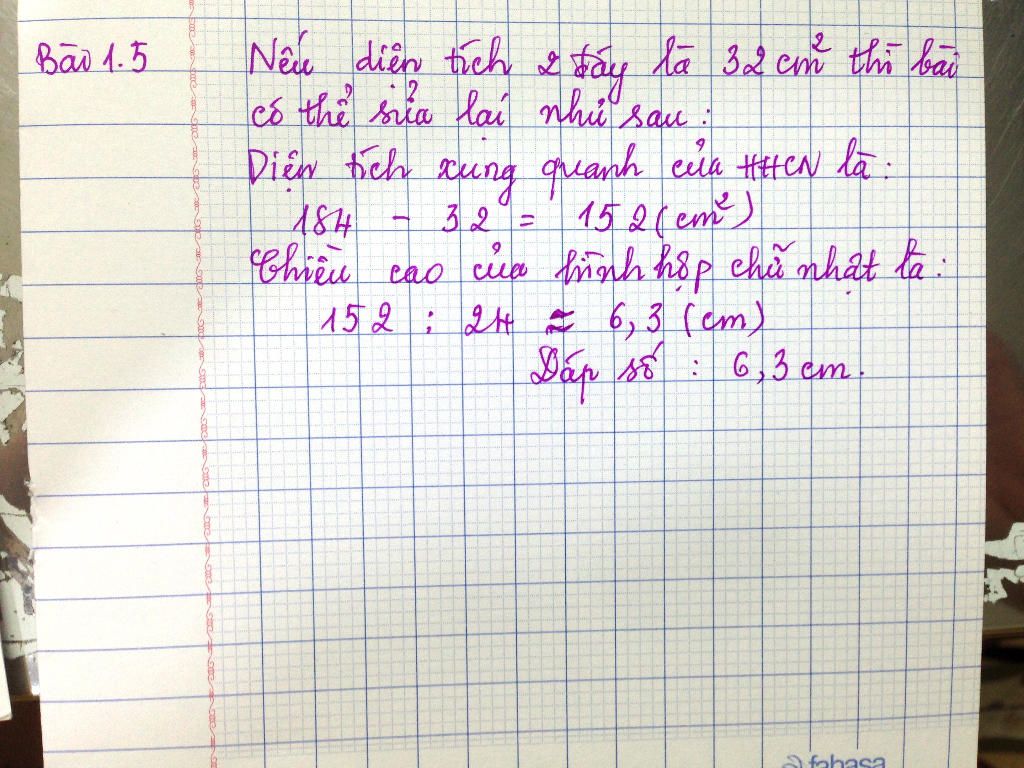 Bài 1.5 Nếu diện tích 2 đáy là 32 cm² thì bài
có thể sửa lại như sau:
Diện tích xung quanh của HHCN là:
184 - 32 = 152 (cm²)
Chiều cao của hình hộp chữ nhật là:
152 : 24 ≈ 6,3 (cm)
Đáp số : 6,3 cm.
fahasa